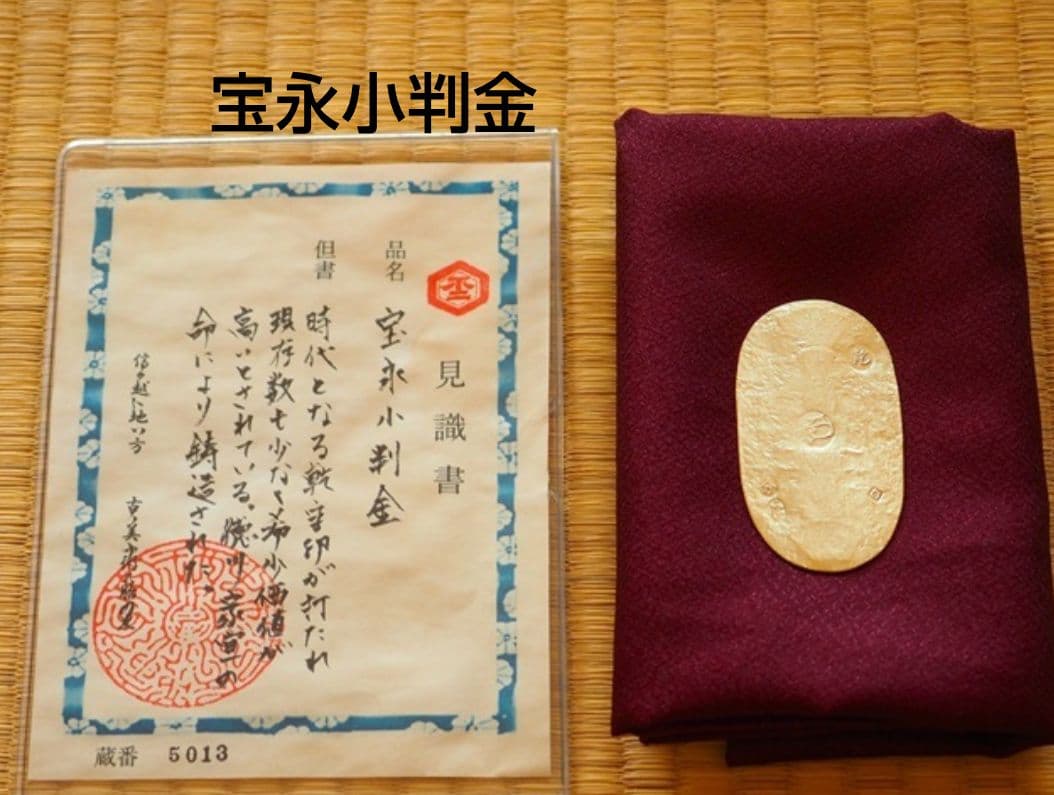 宝永小判金
見識書
品名
宝永小判金
但書
時代となる乾字印が打たれ
現存数も少なく希少価値が
高いとされている。徳川家宣の
命により鋳造された。
信越地方
蔵番 5013